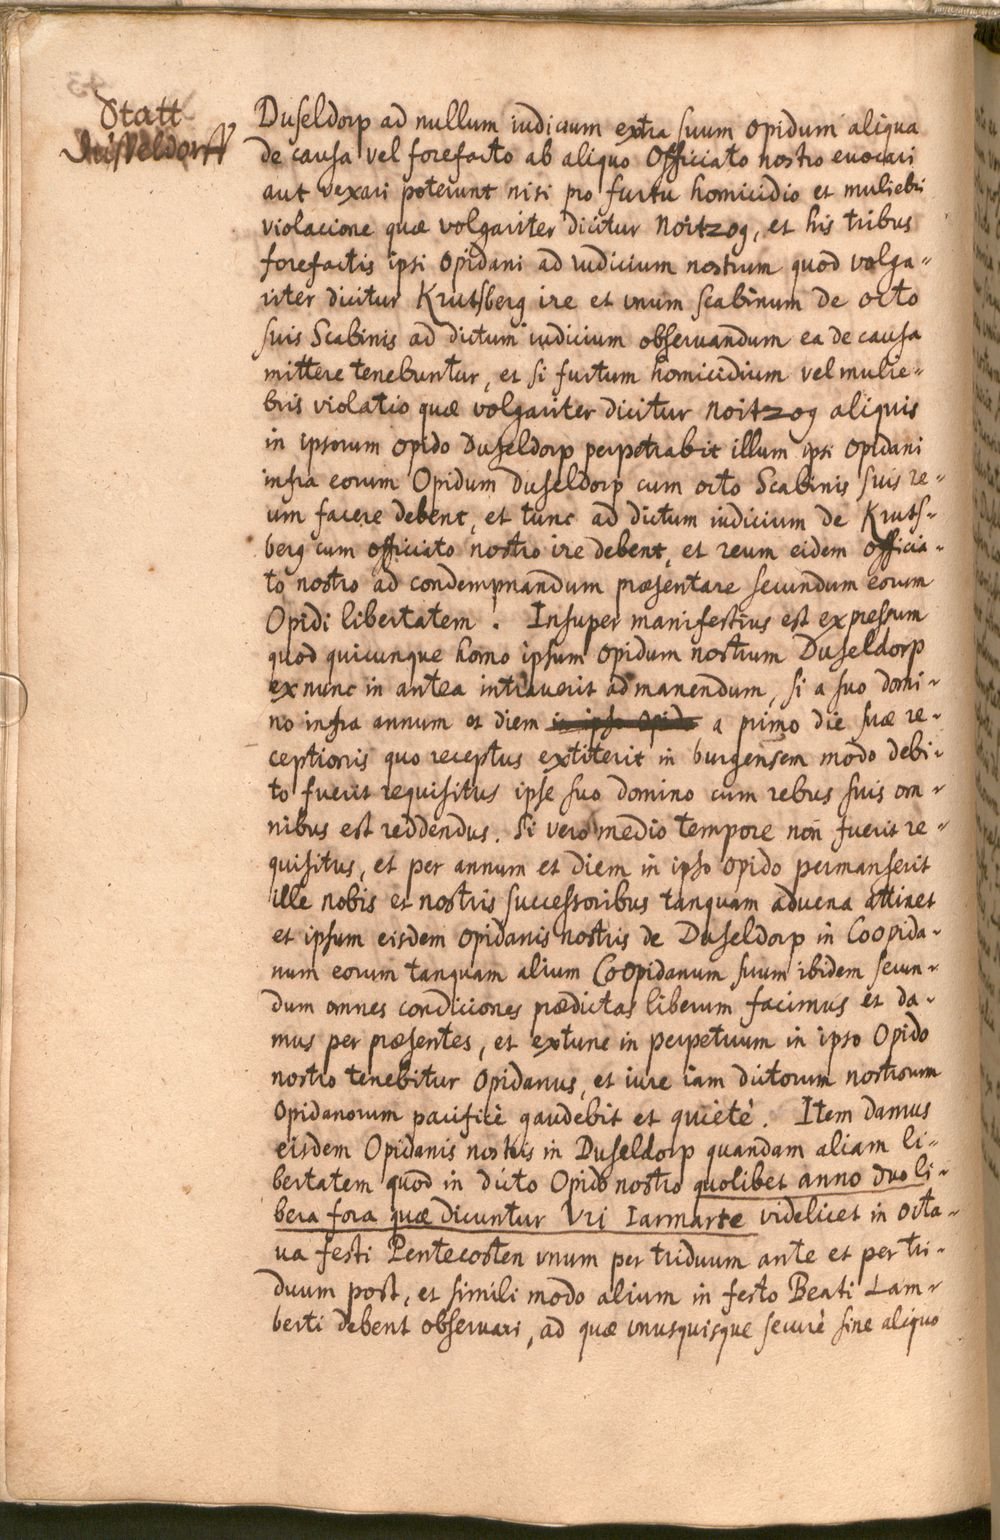 Statt
Düsseldorff
Duseldorp ad nullum iudicium extra suum opidum aliqua
de causa vel forefacto ab aliquo Officiato nostro euocari
aut vexari poterunt nisi pro furtu homicidio et muliebri
violacione quæ volgariter dicitur Noitzog, et his tribus
forefactis ipsi Opidani ad iudicium nostrum quod volga"
riter dicitur Krutsberg ire et vnum scabinum de octo
suis Scabinis ad dictum iudicium obseruandum ea de causa
mittere tenebuntur, et si furtum homicidium vel mulie"
bris violatio quæ volgariter dicitur Noitzog aliquis
in ipsorum opido Duseldorp perpetrabit illum ipsi Opidani
infra eorum Opidum Duseldorp cum octo Scabinis suis re"
um facere debent, et tunc ad dictum iudicium de Kruts"
berg cum officiato nostro ire debent, et reum eidem officia"
to nostro ad condempnandum præsentare secundum eorum
Opidi libertatem. Insuper manifestius est expressum
quod quicunque homo ipsum opidum nostrum Duseldorp
ex nunc in antea intrauerit ad manendum, si a suo domi"
no infra annum et diem in ipso Opido a primo die suæ re"
ceptionis quo receptus extiterit in burgensem modo debi"
to fuerit requisitus ipse suo domino cum rebus suis om"
nibus est reddendus. Si vero medio tempore non fuerit re"
quisitus, et per annum et diem in ipso opido permanserit
ille nobis et nostris successoribus tanquam aduena attinet
et ipsum eisdem opidanis nostris de Duseldorp in Coopida"
num eorum tanquam alium Coopidanum suum ibidem secun"
dum omnes condiciones prædictas liberum facimus et da"
mus per præsentes, et extunc in perpetuum in ipso Opido
nostro tenebitur Opidanus, et iure iam dictorum nostrorum
Opidanorum pacificè gaudebit et quietè. Item damus
eisdem Opidanis nostris in Duseldorp quandam aliam li"
bertatem quod in dicto Opido nostro quolibet anno duo li"
bera fora quæ dicuntur Vri Iarmarte videlicet in octa"
ua festi Pentecosten vnum per triduum ante et per tri"
duum post, et simili modo alium in festo Beati Lam"
berti debent obseruari, ad quæ vnusquisque securè sine aliquo